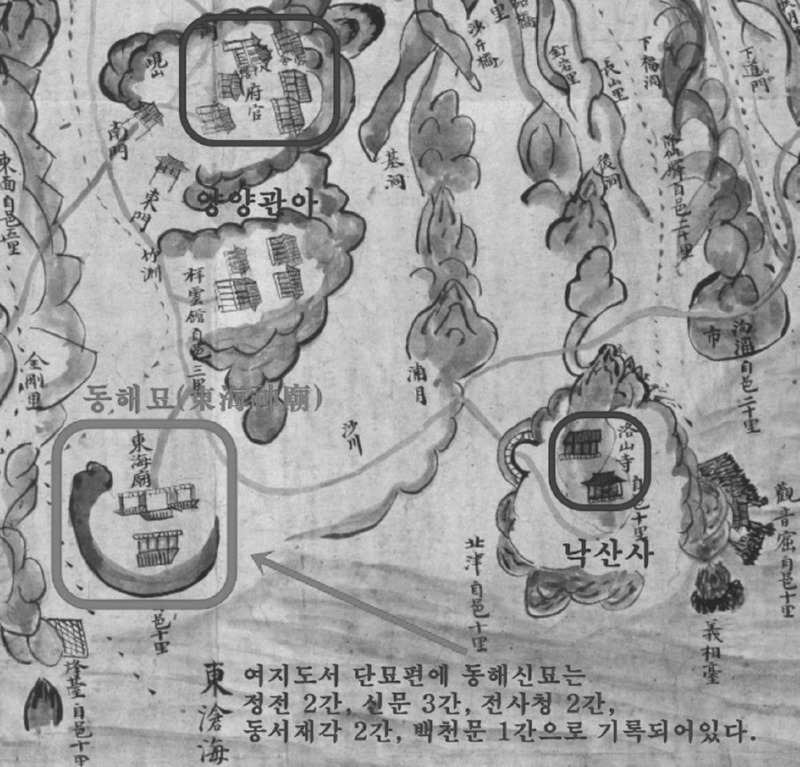 里
路橋
沙介橋
釘岩里
長山里
下福洞
下道門
峴山
府官
南門
東門
竹淵
墓祠
後洞
東面自邑五里
양양관아
祥雲館自邑三里
金剛里
동해묘(東海神廟)
浦月
沙川
市
沟淄自邑二十里
東海廟
邑十里
洛山寺
自邑十里
낙산사
北津自邑十里
觀音窟自邑十里
義相臺
烽臺自邑十里
東滄海
여지도서 단묘편에 동해신묘는
정전 2간, 신문 3간, 전사청 2간,
동서재각 2간, 백천문 1간으로 기록되어있다.